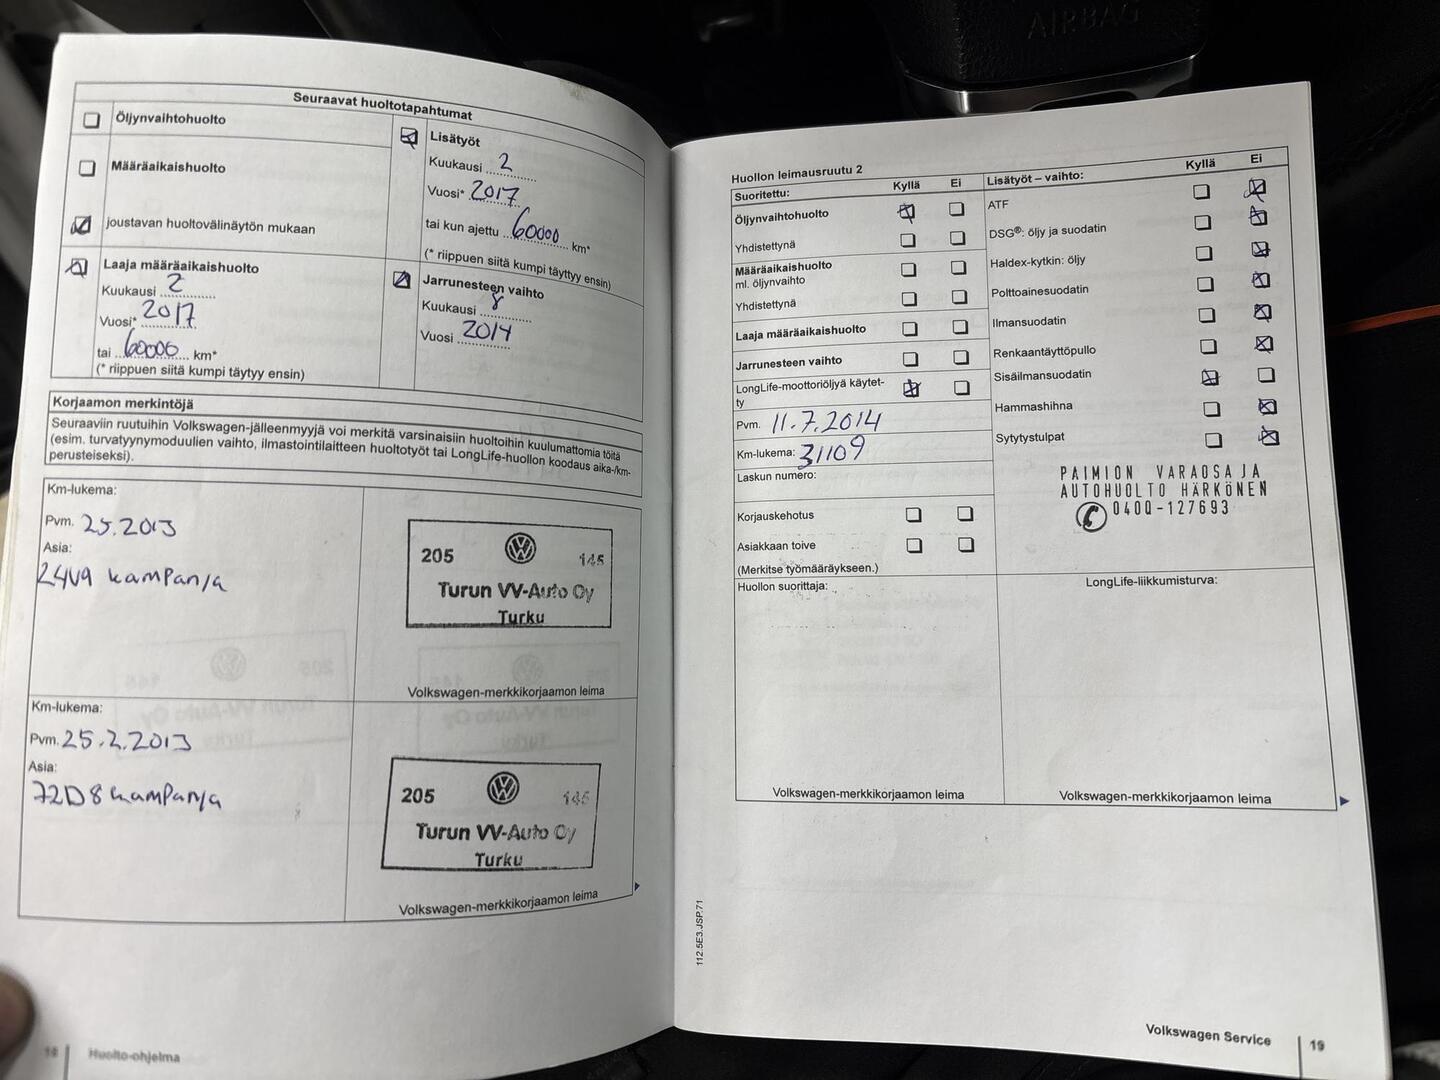 AIRBAG
Seuraavat huoltotapahtumat
Öljynvaihtohuolto
Määräaikaishuolto
joustavan huoltovälinäytön mukaan
Lisätyöt
Kuukausi 2
Vuosi* 2017
tai kun ajettu 60000 km*
(* riippuen siitä kumpi täyttyy ensin)
Laaja määräaikaishuolto
Kuukausi 2
Vuosi* 2017
tai 60000 km*
(* riippuen siitä kumpi täytyy ensin)
Jarrunesteen vaihto
Kuukausi 8
Vuosi 2014
Korjaamon merkintöjä
Seuraaviin ruutuihin Volkswagen-jälleenmyyjä voi merkitä varsinaisiin huoltoihin kuulumattomia töitä
(esim. turvatyynymoduulien vaihto, ilmastointilaitteen huoltotyöt tai LongLife-huollon koodaus aika-/km-
perusteiseksi).
Km-lukema:
Pvm. 25.2013
Asia:
24U9 kampanja
205 145
Turun VV-Auto Oy
Turku
Volkswagen-merkkikorjaamon leima
Km-lukema:
Pvm. 25.2.2013
Asia:
72D8 kampanja
205 145
Turun VV-Auto Oy
Turku
Volkswagen-merkkikorjaamon leima
Huolto-ohjelma
Huollon leimausruutu 2
Suoritettu: Kyllä Ei
Öljynvaihtohuolto
Yhdistettynä
Määräaikaishuolto
ml. öljynvaihto
Yhdistettynä
Laaja määräaikaishuolto
Jarrunesteen vaihto
LongLife-moottoriöljyä käytet-
ty
Pvm. 11.7.2014
Km-lukema: 31109
Laskun numero:
Korjauskehotus
Asiakkaan toive
(Merkitse työmääräykseen.)
Lisätyöt – vaihto: Kyllä Ei
ATF
DSG®: öljy ja suodatin
Haldex-kytkin: öljy
Polttoainesuodatin
Ilmansuodatin
Renkaantäyttöpullo
Sisäilmansuodatin
Hammashihna
Sytytystulpat
PAIMION VARAOSA JA
AUTOHUOLTO HÄRKÖNEN
0400-127693
Huollon suorittaja:
LongLife-liikkumisturva:
Volkswagen-merkkikorjaamon leima
Volkswagen-merkkikorjaamon leima
112.5E3.JSP.71
Volkswagen Service 19